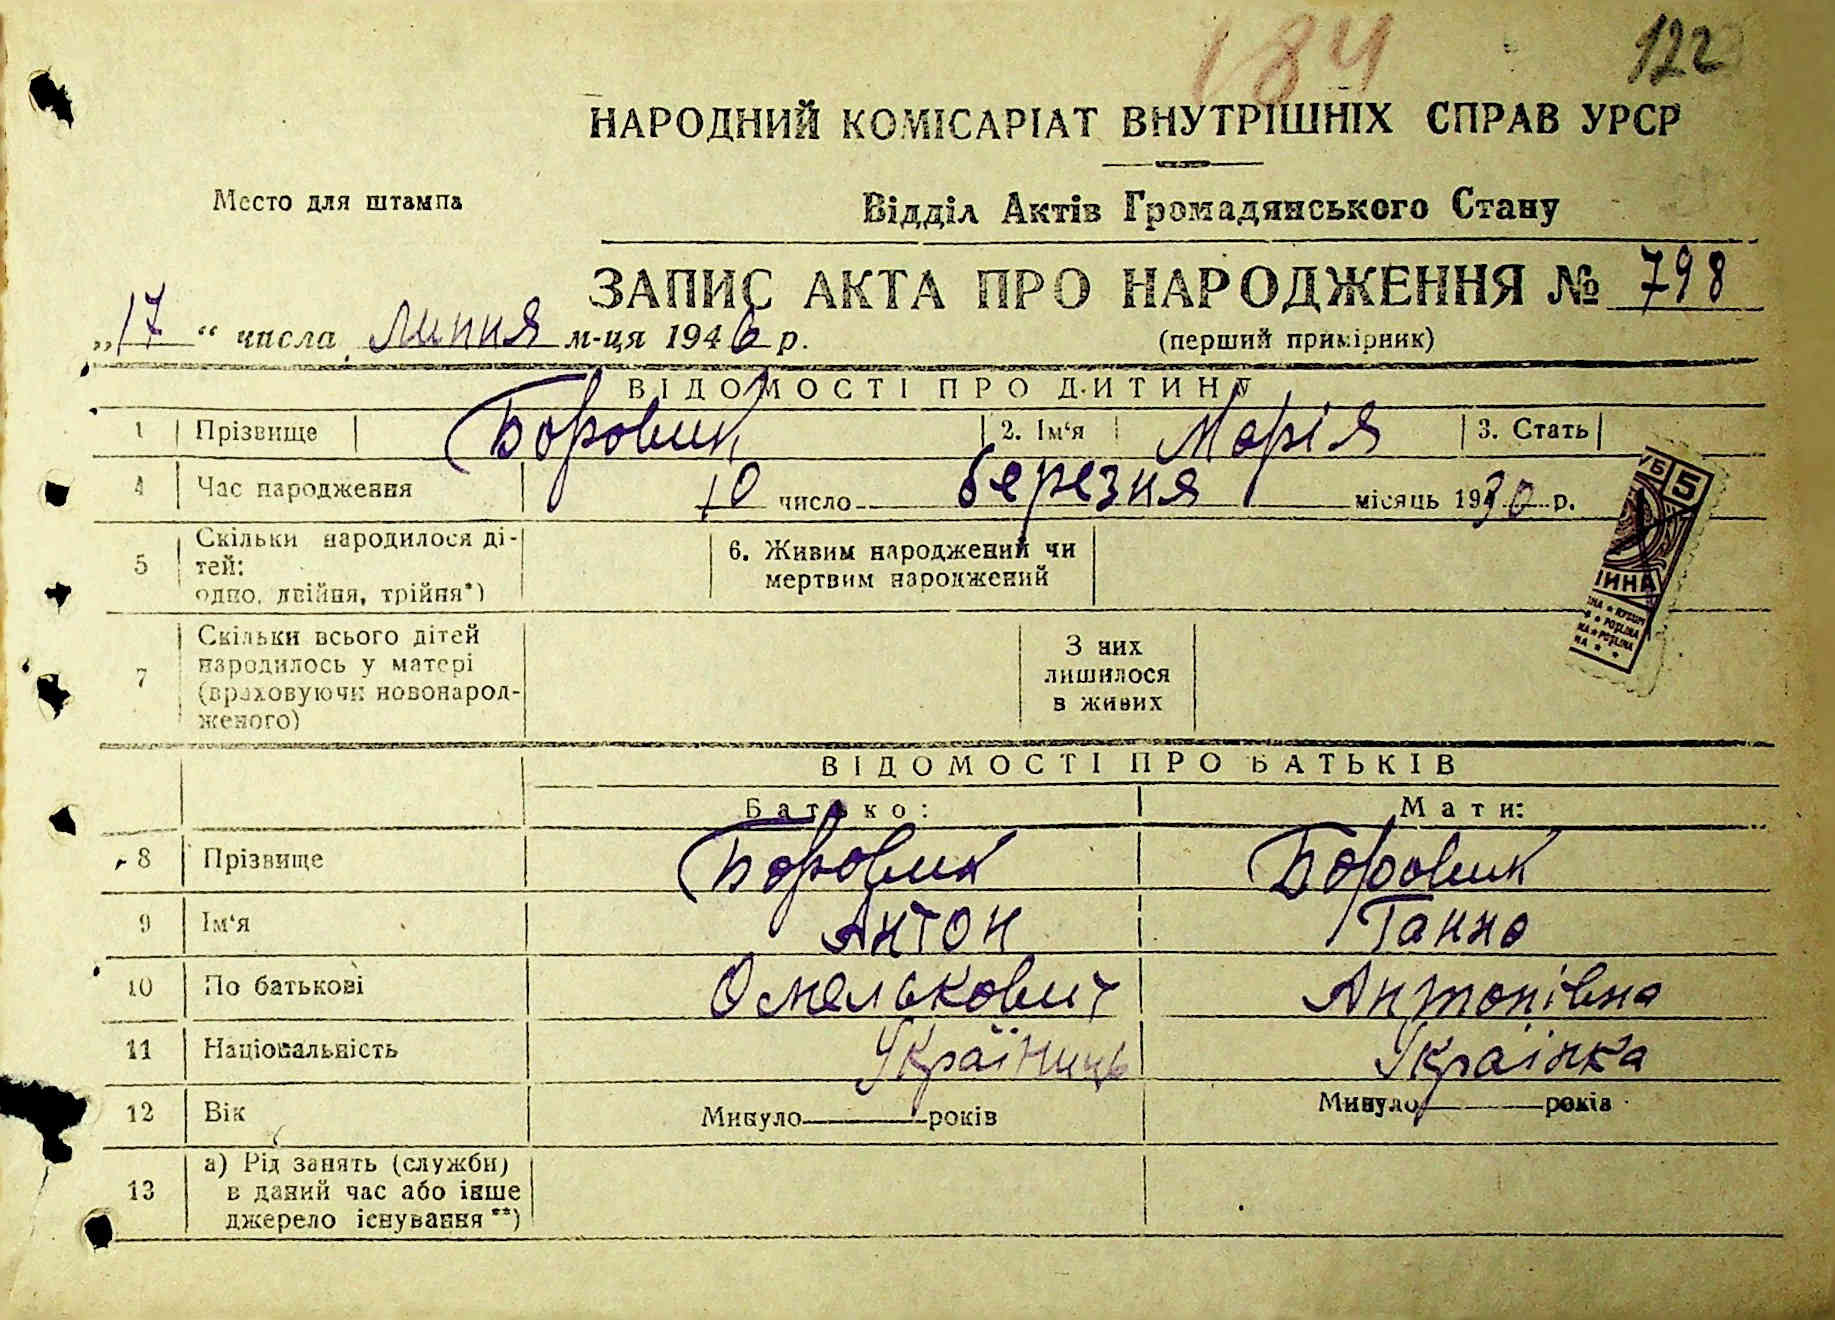 184
122
НАРОДНИЙ КОМІСАРІАТ ВНУТРІШНІХ СПРАВ УРСР
Место для штампа
Відділ Актів Громадянського Стану
ЗАПИС АКТА ПРО НАРОДЖЕННЯ № 798
„17“ числа липня м-ця 1946 р.
(перший примірник)
ВІДОМОСТІ ПРО ДИТИНУ
1 Прізвище Боровик 2. Ім‘я Марія 3. Стать
4 Час народження 10 число березня місяць 1930 р.
5 Скільки народилося ді-
тей:
одно, двійня, трійня*)
6. Живим народжений чи
мертвим народжений
7 Скільки всього дітей
народилось у матері
(враховуючи новонарод-
женого)
З них
лишилося
в живих
УБ 5
ИНА
ВІДОМОСТІ ПРО БАТЬКІВ
Батько: Мати:
8 Прізвище Боровик Боровик
9 Ім‘я Антон Ганна
10 По батькові Омелькович Антонівна
11 Національність Україниць Українка
12 Вік Минуло років Минуло років
13 а) Рід занять (служби)
в даний час або інше
джерело існування **)